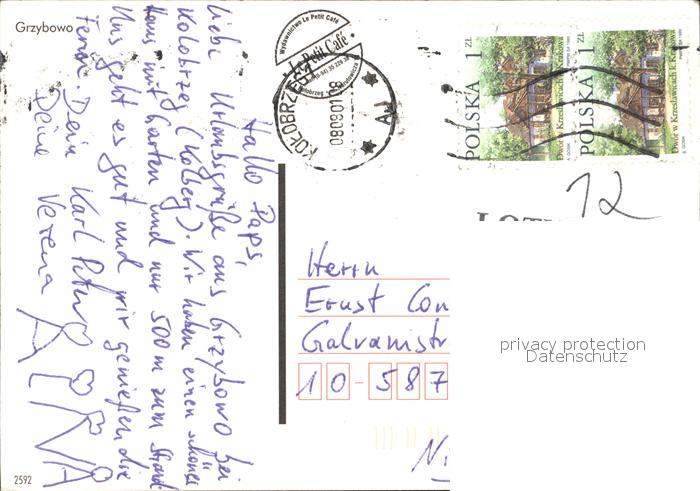 Grzybowo
Hallo Paps,
liebe Urlaubsgrüße aus Grzybowo bei
Kolobrzeg (Kolberg). Wir haben einen schönes
Haus mit Garten und nur 500m zum Strand
Uns geht es gut und wir genießen die
Ferien. Dein Karl Peter
Deine Verena
2592
Wydawnictwo Le Petit Café
Le Petit Café
KOŁOBRZEG 1
POLSKA 1 ZŁ
Dwór w Krzesławicach k. Krakowa
POLSKA 1 ZŁ
Dwór w Krzesławicach k. Krakowa
12
Herrn
Ernst Con
Galvanistr
10-587
privacy protection
Datenschutz